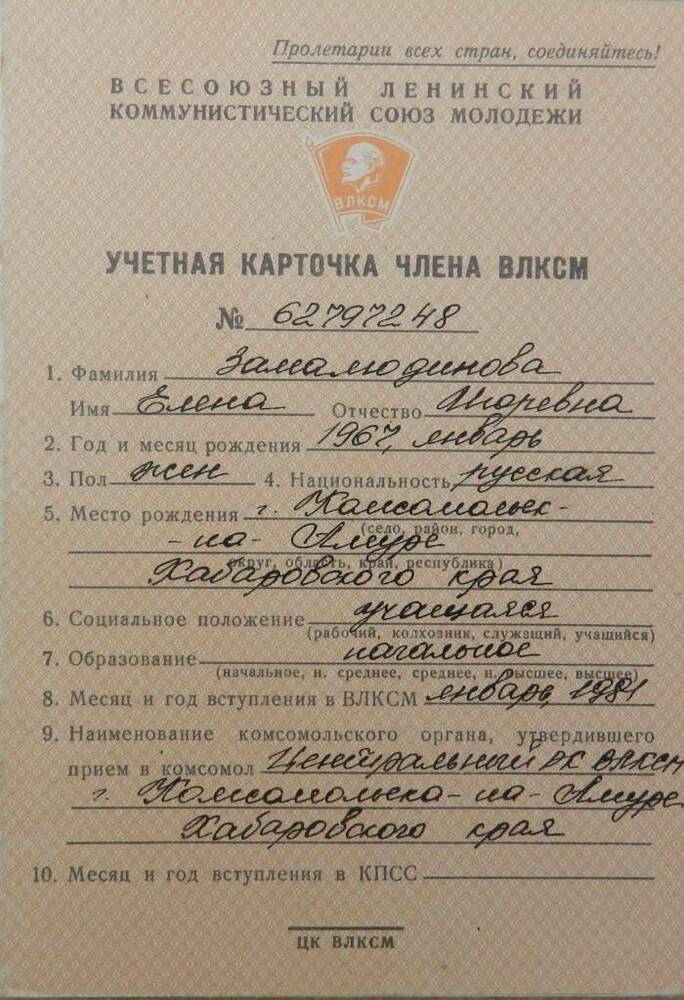 Пролетарии всех стран, соединяйтесь!
ВСЕСОЮЗНЫЙ ЛЕНИНСКИЙ
КОММУНИСТИЧЕСКИЙ СОЮЗ МОЛОДЕЖИ
ВЛКСМ
УЧЕТНАЯ КАРТОЧКА ЧЛЕНА ВЛКСМ
№ 62797248
1. Фамилия Замалюдинова
Имя Елена Отчество Игоревна
2. Год и месяц рождения 1967, январь
3. Пол жен 4. Национальность русская
5. Место рождения г. Комсомольск-
(село, район, город,
-на-Амуре
округ, область, край, республика)
Хабаровского края
6. Социальное положение учащаяся
(рабочий, колхозник, служащий, учащийся)
7. Образование начальное
(начальное, н. среднее, среднее, н. высшее, высшее)
8. Месяц и год вступления в ВЛКСМ январь, 1981
9. Наименование комсомольского органа, утвердившего
прием в комсомол Центральный РК ВЛКСМ
г. Комсомольска-на-Амуре
Хабаровского края
10. Месяц и год вступления в КПСС
ЦК ВЛКСМ